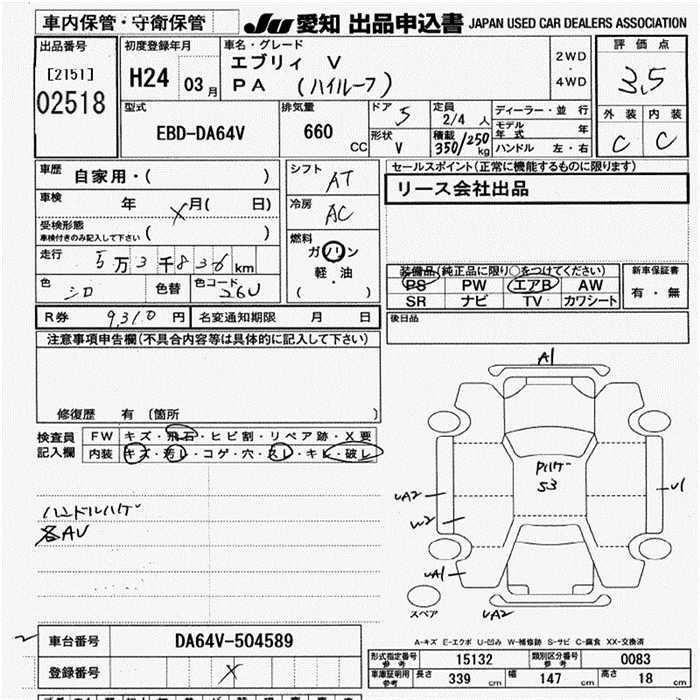 車内保管・守衛保管 JU 愛知 出品申込書 JAPAN USED CAR DEALERS ASSOCIATION
出品番号 初度登録年月 車名・グレード 評価点
[2151] 02518 H24 03月 エブリィ V 2WD・4WD 3.5
PA (ハイルーフ)
型式 排気量 ドア 5 定員 2/4人 ディーラー・並行 外装 内装
EBD-DA64V 660 CC 形状 V 積載 350/250kg モデル年式 年 C C
ハンドル 左・右
車歴 自家用・( ) シフト AT セールスポイント(正常に機能するものに限ります)
リース会社出品
車検 年 X 月( 日) 冷房 AC
受検形態 車検付きのみ記入して下さい ( )
燃料 ガソリン 軽・油 ( )
走行 5万3千836km 装備品(純正品に限り○をつけてください) 新車保証書
色 シロ 色替 色コード 26U PS PW エアB AW 有・無
SR ナビ TV カワシート
R券 9,310円 名変通知期限 月 日 後日品
注意事項申告欄(不具合内容等は具体的に記入して下さい)
修復歴 有 〔箇所 〕
検査員 FW キズ・飛石・ヒビ割・リペア跡・X要
記入欄 内装 キズ・汚レ・コゲ・穴・スレ・キレ・破レ
ハンドルハゲ
各AU
A1
Pハゲ
S3
UA2
W2
U1
UA1
UA2
スペア
A-キズ E-エクボ U-凹み W-補修跡 S-サビ C-腐食 XX-交換済
車台番号 DA64V-504589
登録番号 X
形式指定番号 参考 15132 類別区分番号 参考 0083
車庫証明用 参考 長さ 339cm 幅 147cm 高さ 18cm